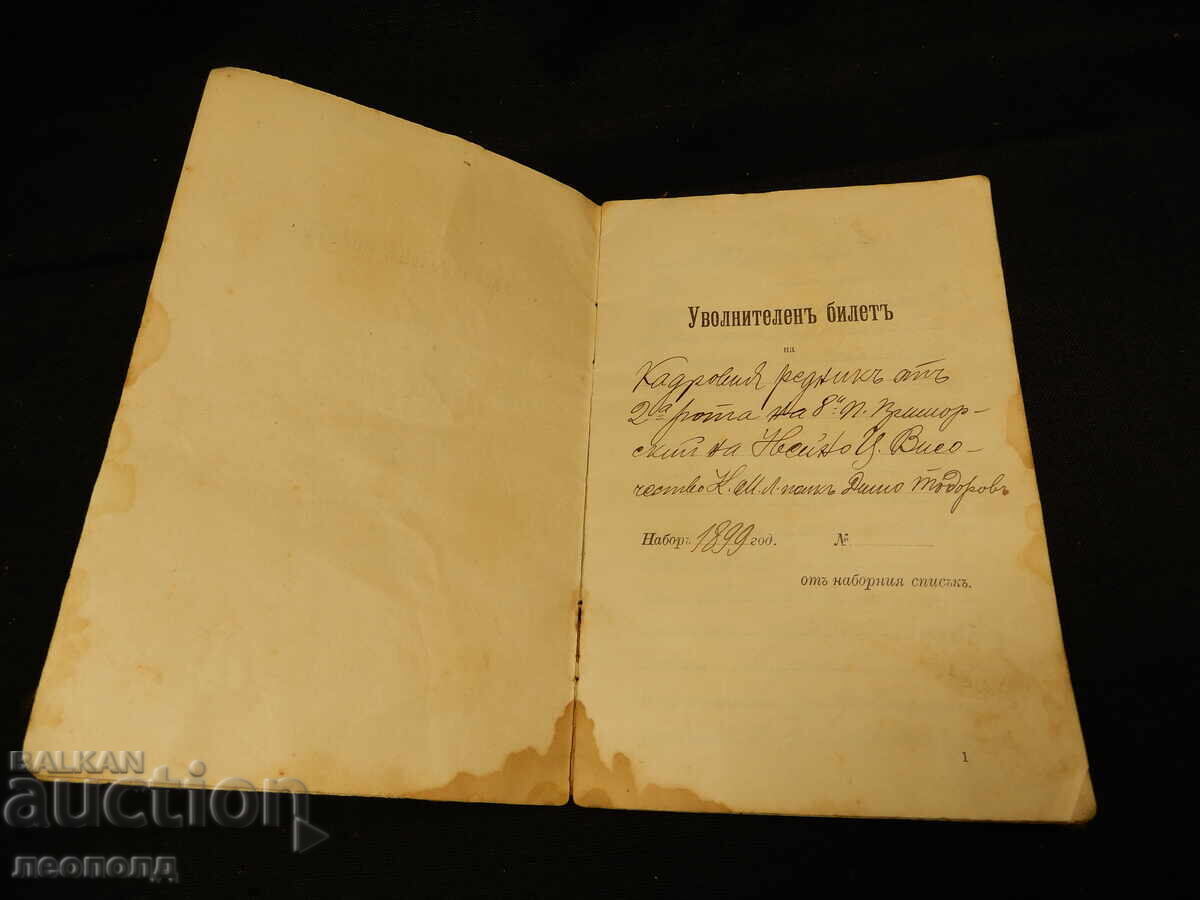 Уволнителенъ билетъ
на
Кадровия редникъ отъ
2ра рота на 8й п. Примор-
ский на Нейно Ц. Висо-
чество К. М. Л. полкъ Димо Тодоровъ
Наборъ 1899 год. №
отъ наборния списъкъ.
1
BALKAN
auction
леополд